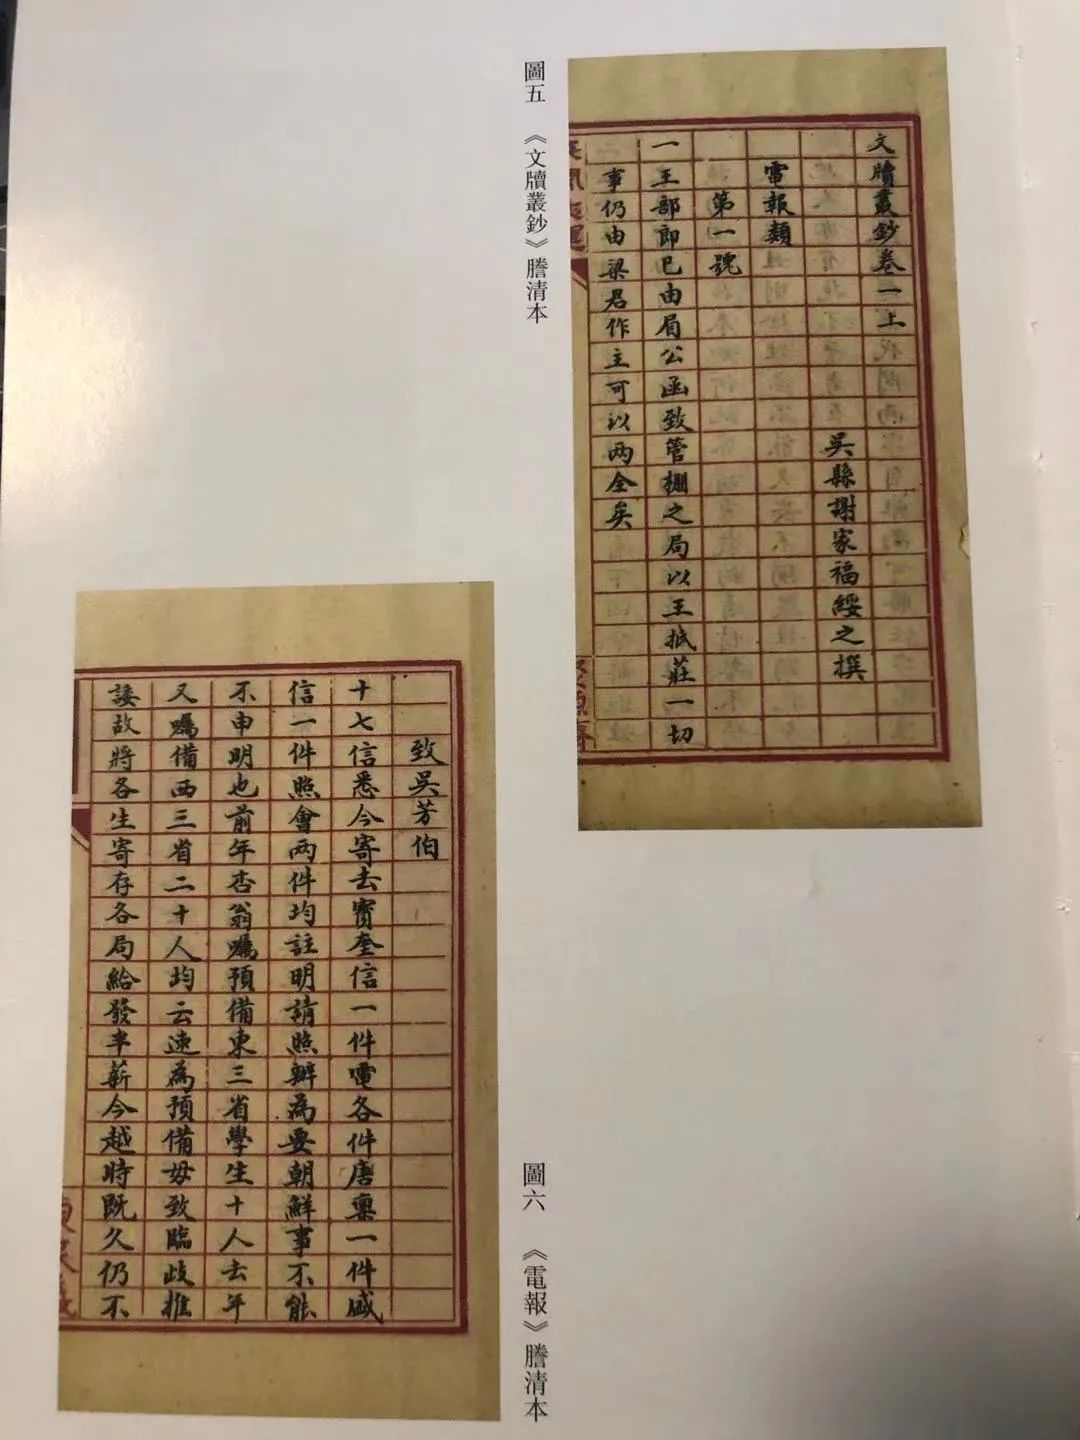 圖五 《文牘叢鈔》謄清本
文牘叢鈔卷一上
吳縣謝家福綏之撰
電報類
第一號
一王部郎已由局公函致管棚之局以王抵莊一切
事仍由梁君作主可以兩全矣
圖六 《電報》謄清本
致吳芳伯
十七信悉今寄去寶奎信一件電各件唐稟一件盛
信一件照會兩件均註明請照辦為要朝鮮事不能
不申明也前年杏翁囑預備東三省學生十人去年
又囑備西三省二十人均云速為預備毋致臨歧推
諉故將各生寄存各局給發半薪今越時既久仍不